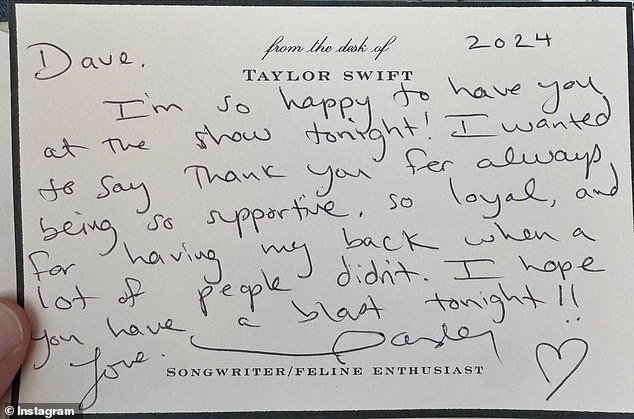 from the desk of
2024
TAYLOR SWIFT
Dave.
I'm so happy to have you
at the show tonight! I wanted
to say Thank you for always
being so supportive, so loyal, and
for having my back when a
lot of people didn't. I hope
you have a blast tonight!!
Love.
SONGWRITER/FELINE ENTHUSIAST
© Instagram